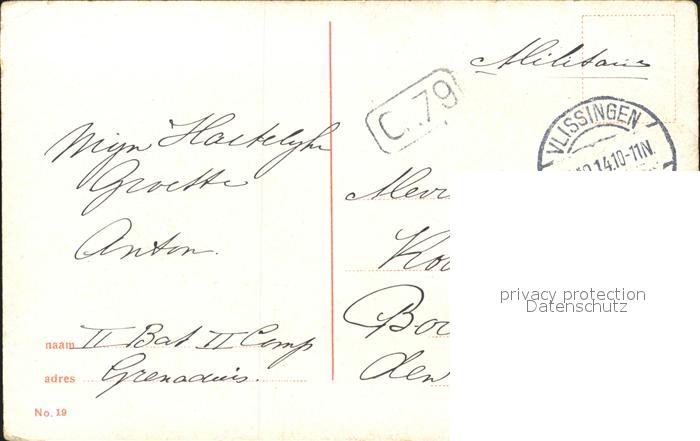 Militair
C. 79
VLISSINGEN
10-11N.
Mijn Hartelyke
Groette
Anton.
Mevr
Bo
den
privacy protection
Datenschutz
naam II Bat II Comp
adres Grenadiers.
No. 19